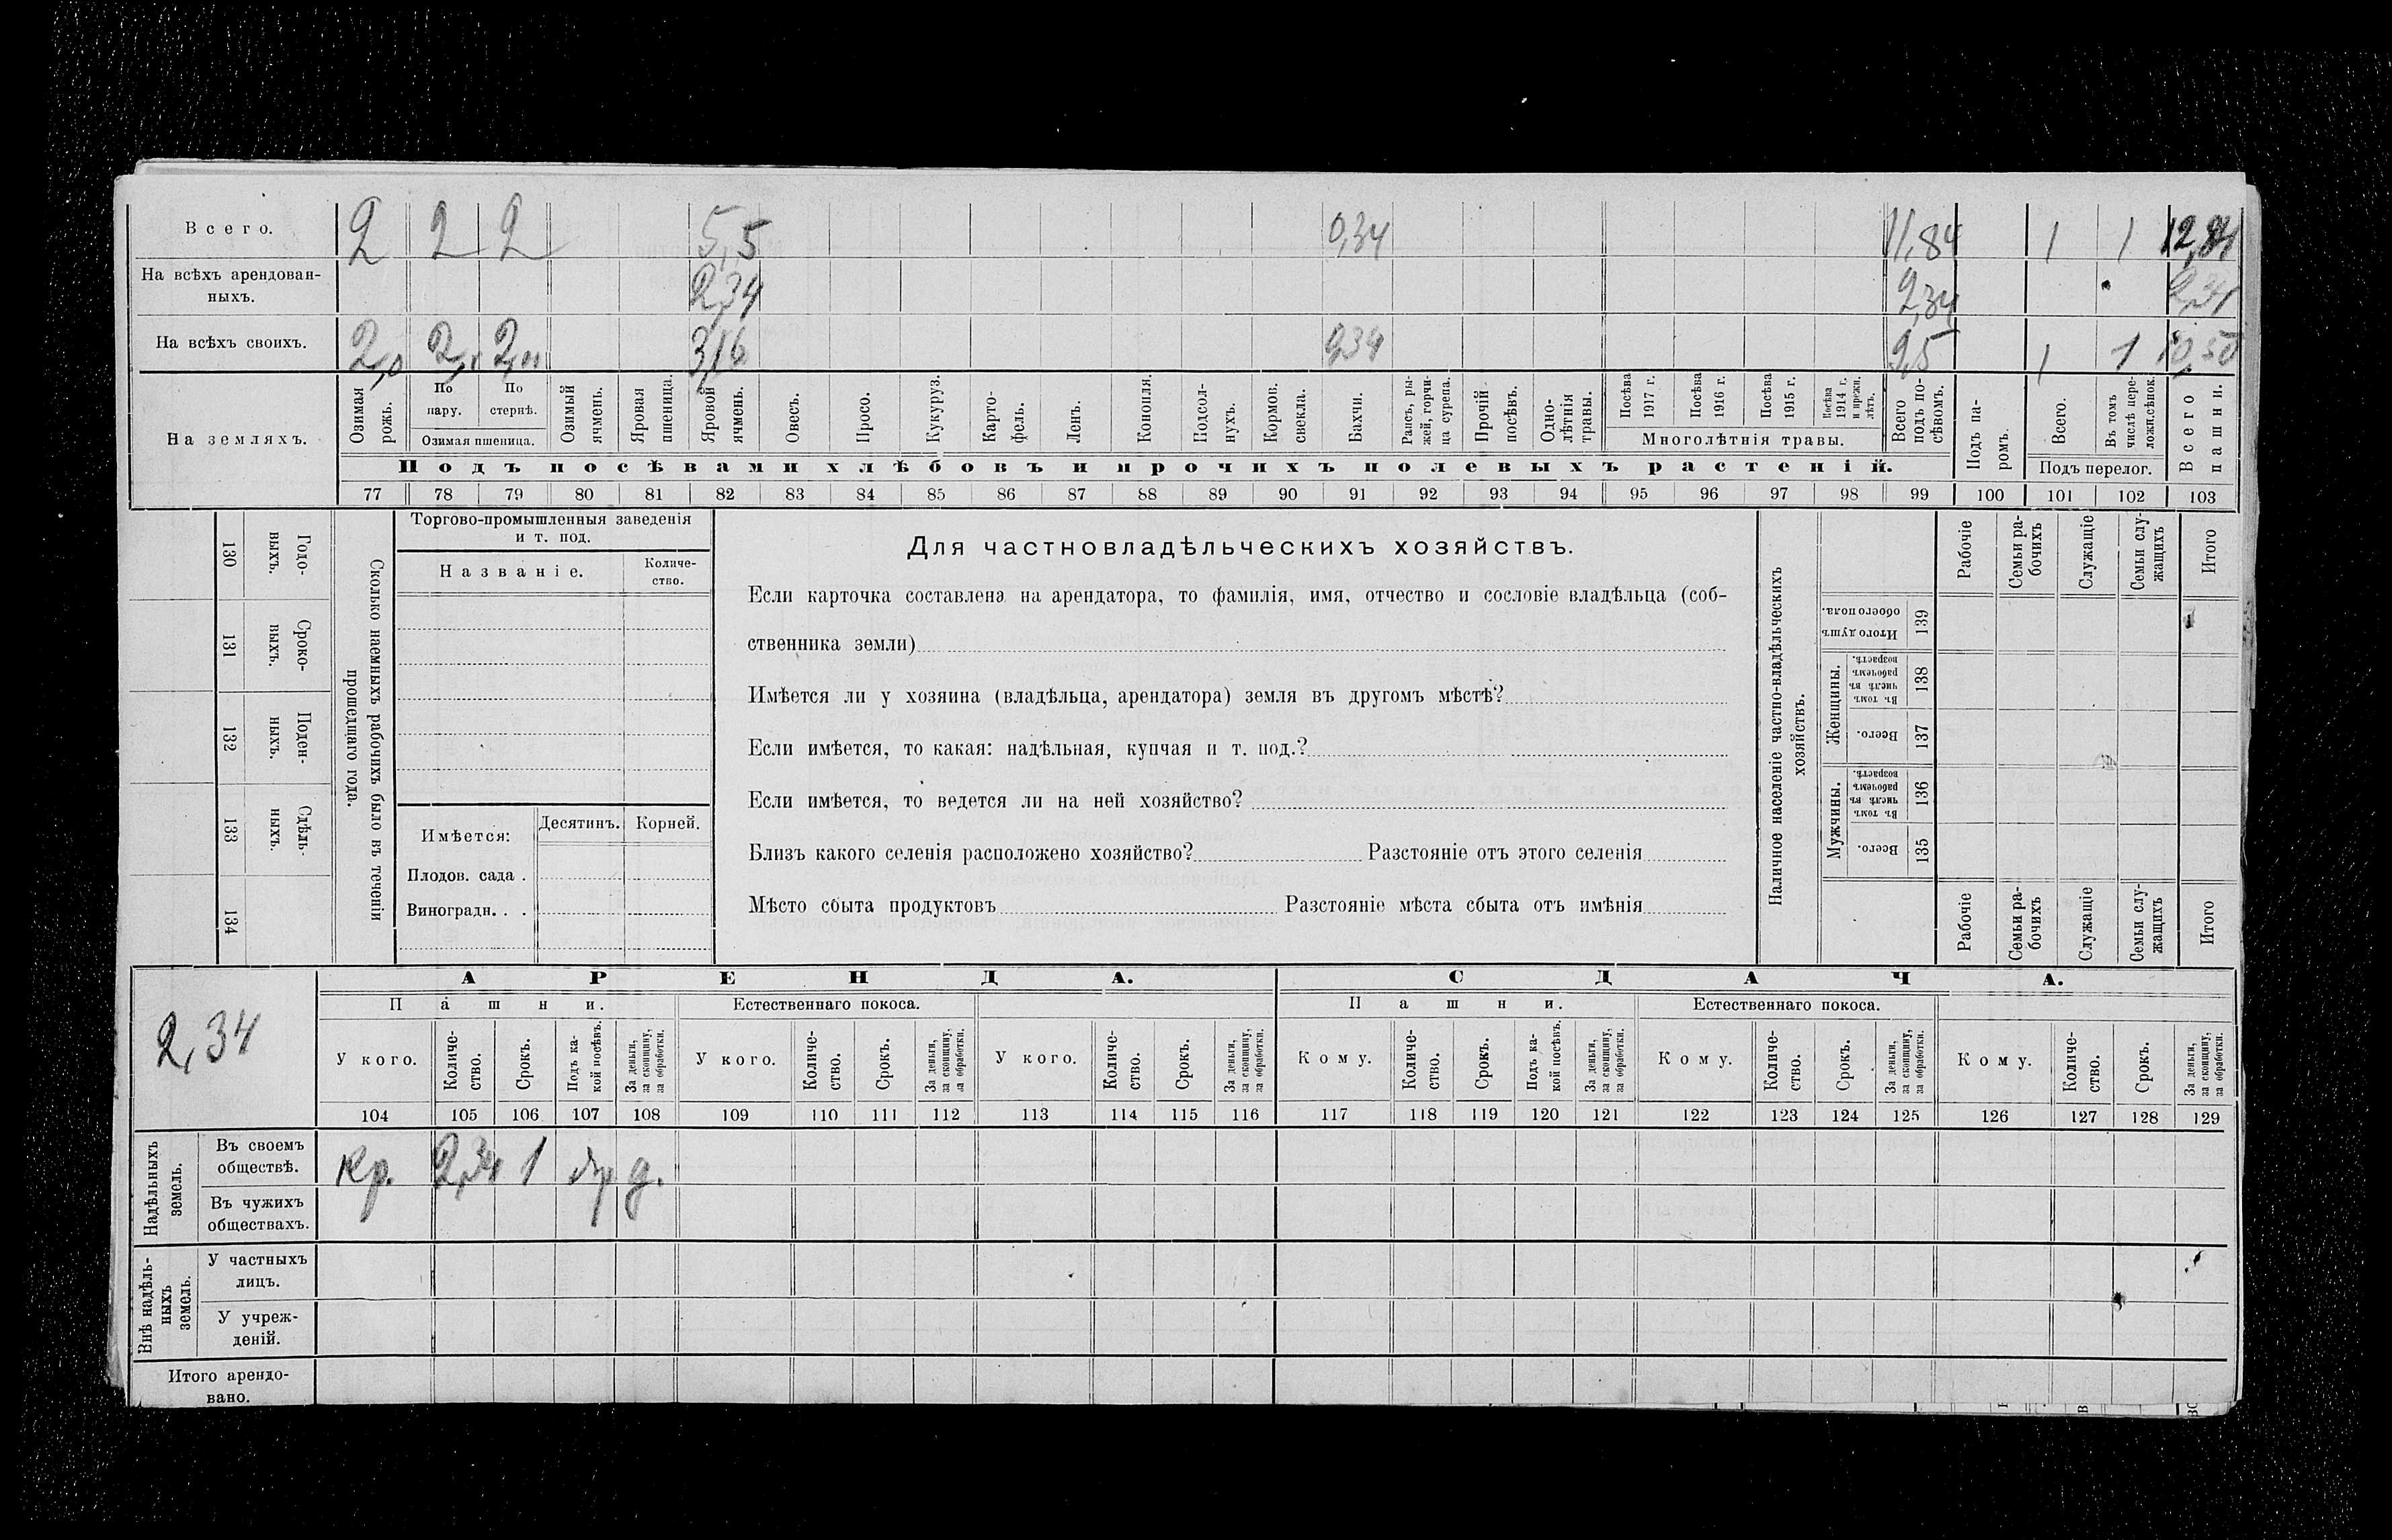 Всего. 2 2 2 5,5 0,34 11,84 1 1 12,84
На всѣхъ арендован-
ныхъ. 2,34 2,34 2,34
На всѣхъ своихъ. 2,0 3,16 0,34 9,5 1 1 10,50
На земляхъ.
Озимая рожь.
По пару.
По стернѣ.
Озимая пшеница.
Озимый ячмень.
Яровая пшеница.
Яровой ячмень.
Овесъ.
Просо.
Кукуруз.
Карто-
фель.
Ленъ.
Конопля.
Подсол-
нухъ.
Кормов.
свекла.
Бахчи.
Рапсъ, ры-
жей, горчи-
ца сурепа.
Прочій
посѣвъ.
Одно-
лѣтнія
травы.
Посѣва
1917 г.
Посѣва
1916 г.
Посѣва
1915 г.
Посѣва
1914 г.
и прежн.
лѣтъ.
Многолѣтнія травы.
Всего
подъ по-
сѣвомъ.
Подъ па-
ромъ.
Всего.
Въ томъ
числѣ пере-
ложн.сѣнок.
Подъ перелог.
Всего
пашни.
Подъ посѣвами хлѣбовъ и прочихъ полевыхъ растеній.
77 78 79 80 81 82 83 84 85 86 87 88 89 90 91 92 93 94 95 96 97 98 99 100 101 102 103
130 Годо-
выхъ.
131 Сроко-
выхъ.
132 Поден-
ныхъ.
133 Сдѣль-
ныхъ.
134
Сколько наемныхъ рабочихъ было въ теченіи
прошедшаго года.
Торгово-промышленныя заведенія
и т. под.
Названіе.
Количе-
ство.
Имѣется:
Десятинъ. Корней.
Плодов. сада .
Виноградн. . .
Для частновладѣльческихъ хозяйствъ.
Если карточка составлена на арендатора, то фамилія, имя, отчество и сословіе владѣльца (соб-
ственника земли)
Имѣется ли у хозяина (владѣльца, арендатора) земля въ другомъ мѣстѣ?
Если имѣется, то какая: надѣльная, купчая и т. под.?
Если имѣется, то ведется ли на ней хозяйство?
Близъ какого селенія расположено хозяйство? Разстояніе отъ этого селенія
Мѣсто сбыта продуктовъ Разстояніе мѣста сбыта отъ имѣнія
Наличное населеніе частно-владѣльческихъ
хозяйствъ.
Рабочіе
Семьи ра-
бочихъ
Служащіе
Семьи слу-
жащихъ
Итого
Итого душъ
обоего пола.
139
Женщины.
Въ томъ
числѣ въ
рабочемъ
возрастѣ.
138
Всего.
137
Мужчины.
Въ томъ
числѣ въ
рабочемъ
возрастѣ.
136
Всего.
135
Рабочіе
Семьи ра-
бочихъ
Служащіе
Семьи слу-
жащихъ
Итого
2,34
АРЕНДА. СДАЧА.
Пашни. Естественнаго покоса. Пашни. Естественнаго покоса.
У кого.
Количе-
ство.
Срокъ.
Подъ ка-
кой посѣвъ.
За деньги,
за скопщину,
за обработки.
У кого.
Количе-
ство.
Срокъ.
За деньги,
за скопщину,
за обработки.
У кого.
Количе-
ство.
Срокъ.
За деньги,
за скопщину,
за обработки.
Кому.
Количе-
ство.
Срокъ.
Подъ ка-
кой посѣвъ.
За деньги,
за скопщину,
за обработки.
Кому.
Количе-
ство.
Срокъ.
За деньги,
за скопщину,
за обработки.
Кому.
Количе-
ство.
Срокъ.
За деньги,
за скопщину,
за обработки.
104 105 106 107 108 109 110 111 112 113 114 115 116 117 118 119 120 121 122 123 124 125 126 127 128 129
Надѣльныхъ
земель.
Въ своемъ
обществѣ. кр. 2,34 1 яр д.
Въ чужихъ
обществахъ.
Внѣ надѣль-
ныхъ
земель.
У частныхъ
лицъ.
У учреж-
деній.
Итого арендо-
вано.